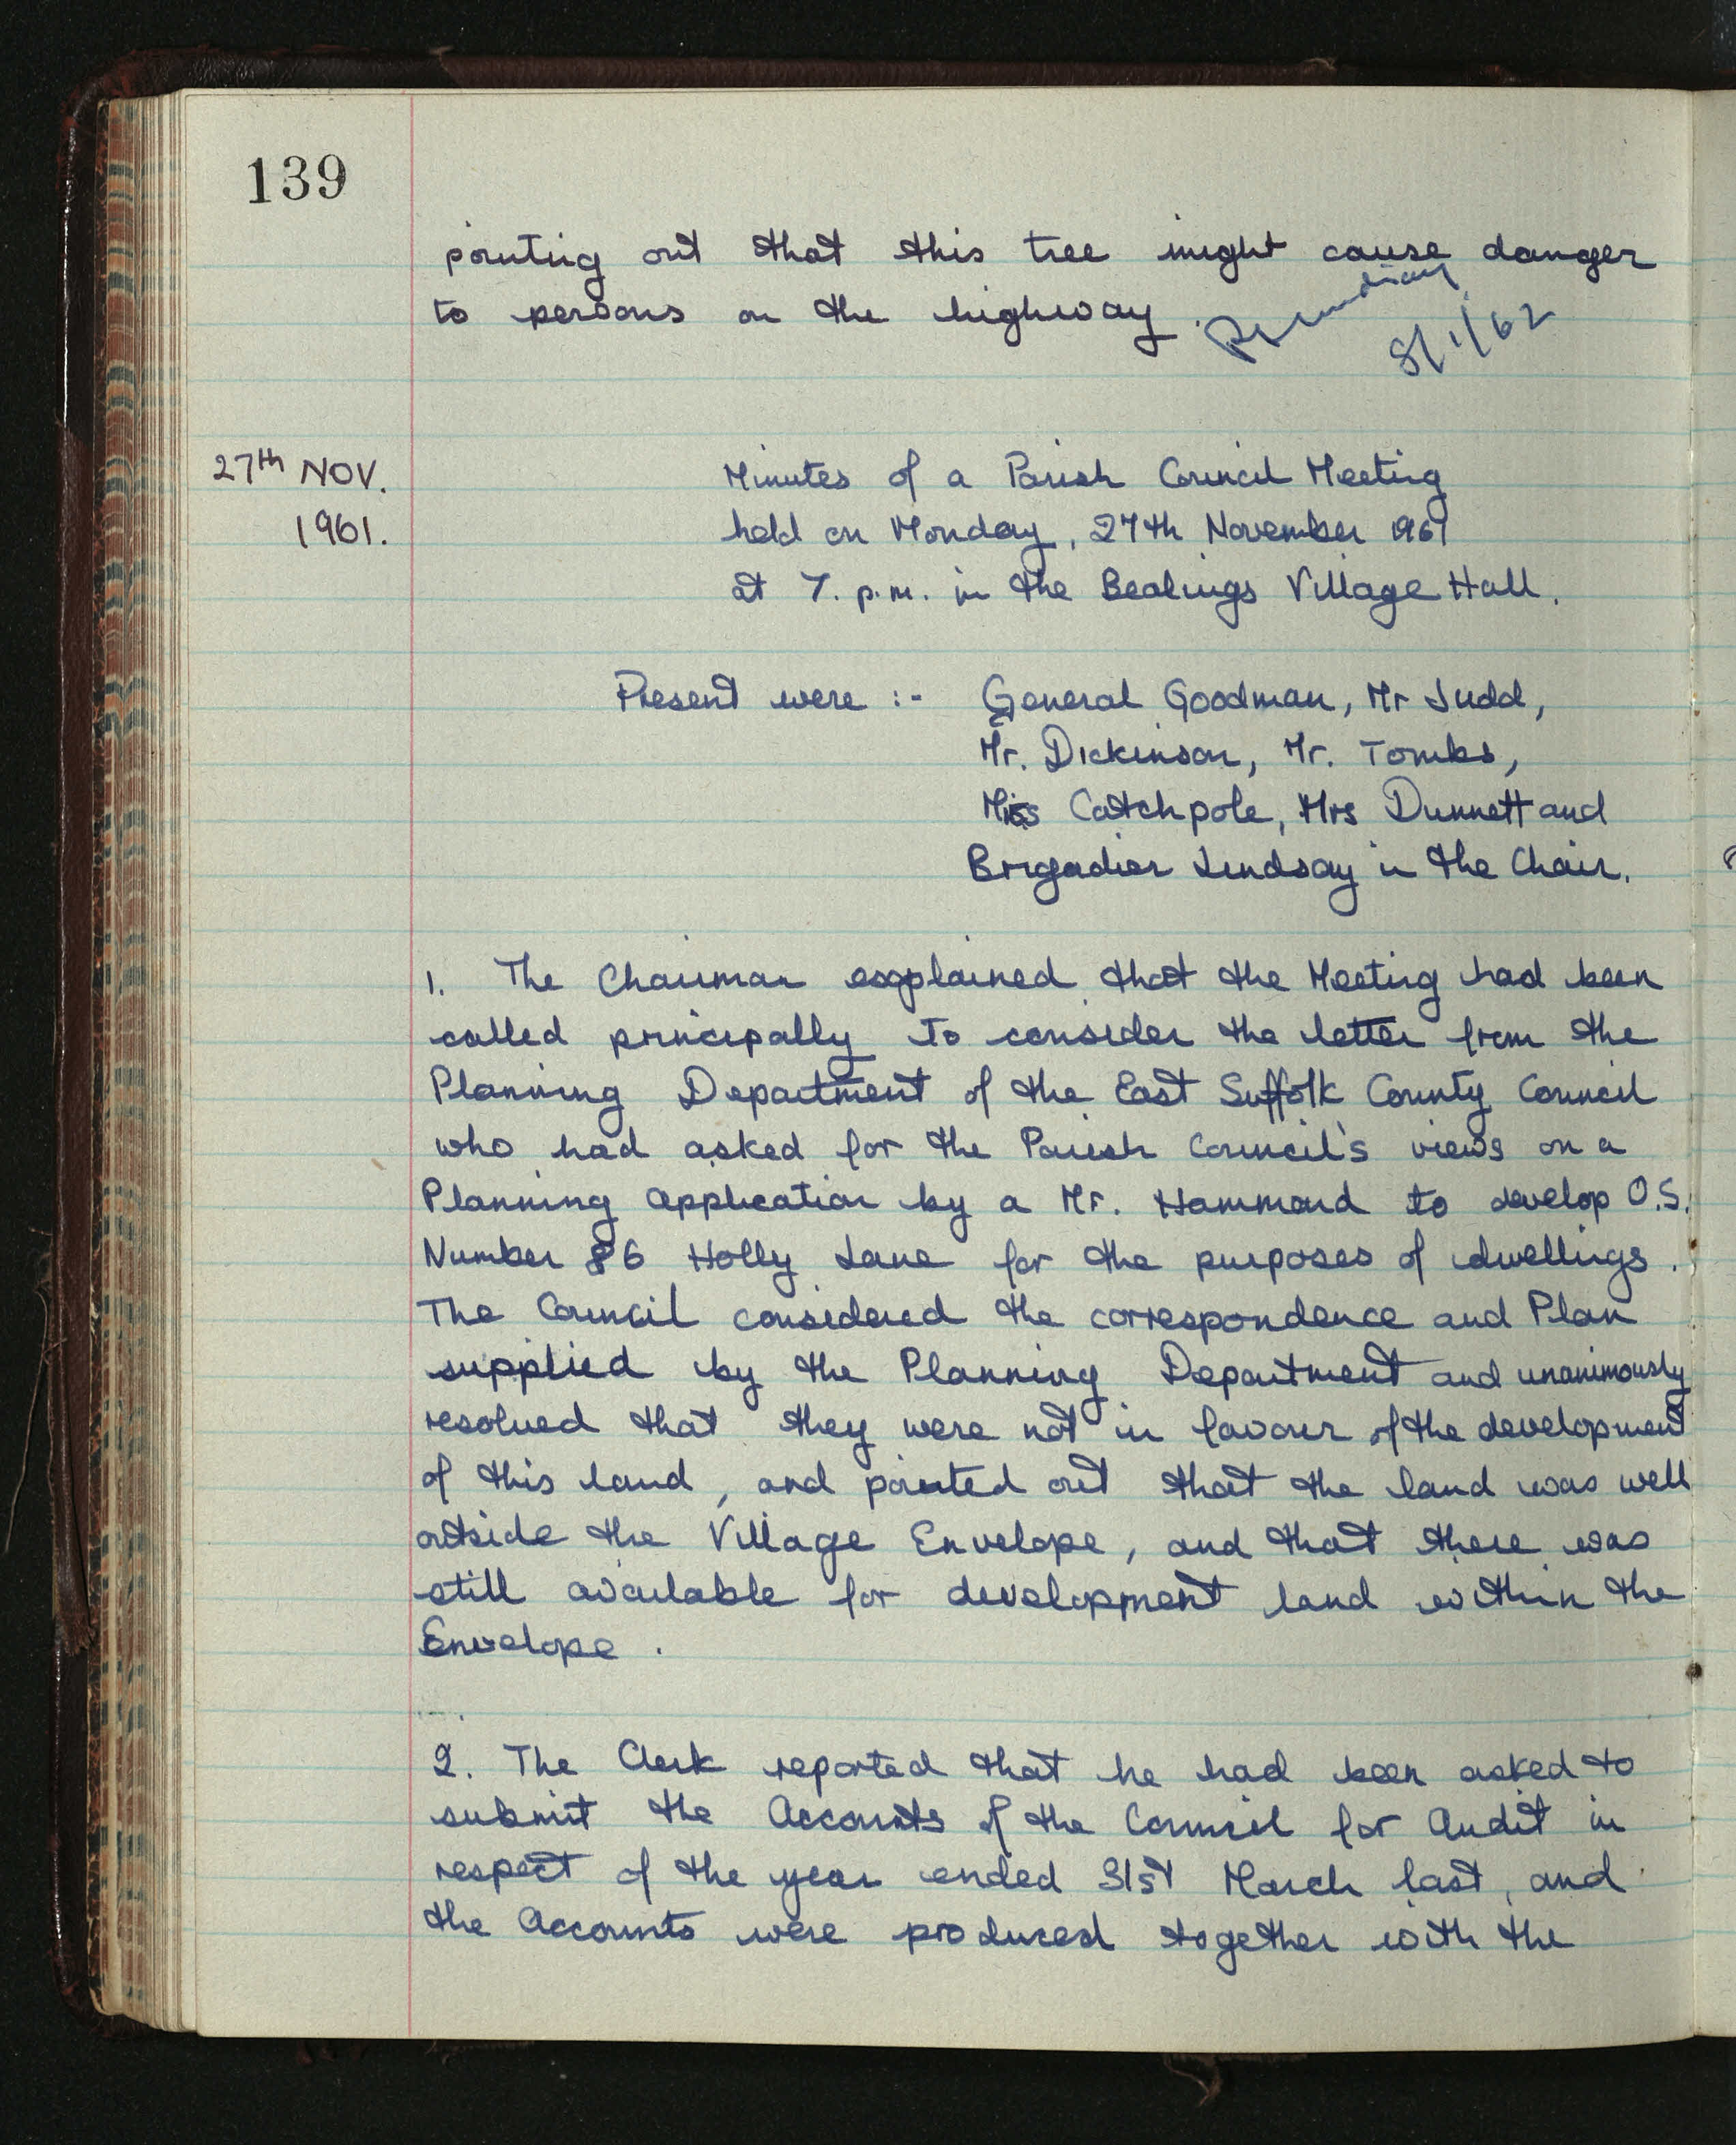 139
pointing out that this tree might cause danger
to persons on the highway.
8/1/62
27th NOV.
1961.
Minutes of a Parish Council Meeting
held on Monday, 27th November 1961
at 7. p.m. in the Bealings Village Hall.
Present were :- General Goodman, Mr Judd,
Mr. Dickinson, Mr. Tombs,
Miss Catchpole, Mrs Dunnett and
Brigadier Lindsay in the Chair.
1. The Chairman explained that the Meeting had been
called principally to consider the letter from the
Planning Department of the East Suffolk County Council
who had asked for the Parish Council's views on a
Planning Application by a Mr. Hammond to develop O.S.
Number 86 Holly Lane for the purposes of dwellings.
The Council considered the correspondence and Plan
supplied by the Planning Department and unanimously
resolved that they were not in favour of the development
of this land, and pointed out that the land was well
outside the Village Envelope, and that there was
still available for development land within the
Envelope.
2. The Clerk reported that he had been asked to
submit the Accounts of the Council for Audit in
respect of the year ended 31st March last, and
the Accounts were produced together with the